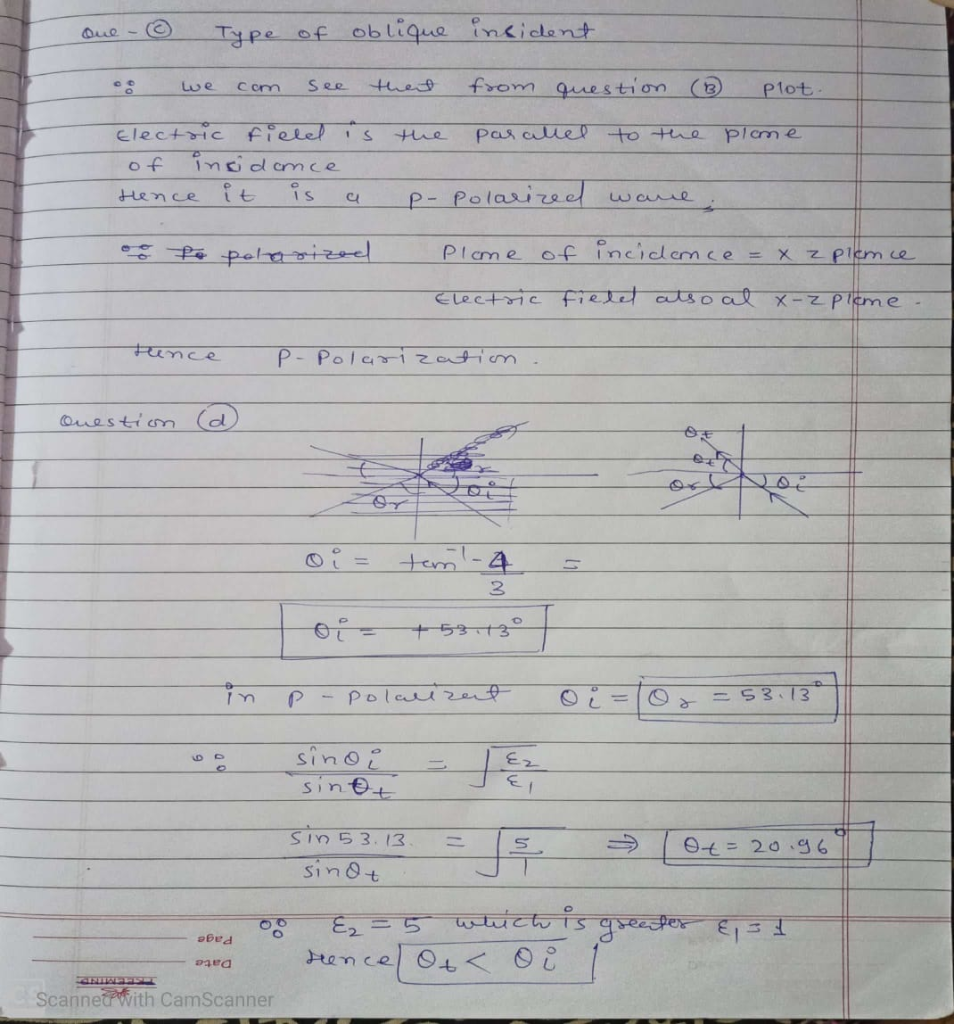 Que - (C) Type of oblique insident
∴ we can see that from question (B) plot.
Electric field is the parallel to the plane
of insidance
Hence it is a p-polarized wave,
Plane of incidance = x z plance
Electric field also al x-z plane.
Hence P-Polarization.
Question (d)
θr θi
θt
θt
θr θi
θi = tan⁻¹ -4/3 =
θi = + 53.13°
in p-polarizent θi = θr = 53.13°
∴ sinθi / sinθt = √(ε2/ε1)
sin 53.13 / sinθt = √(5/1) ⇒ θt = 20.96°
∴ ε2 = 5 which is greater ε1 = 1
Hence θt < θi
Page
Date
Scanned with CamScanner